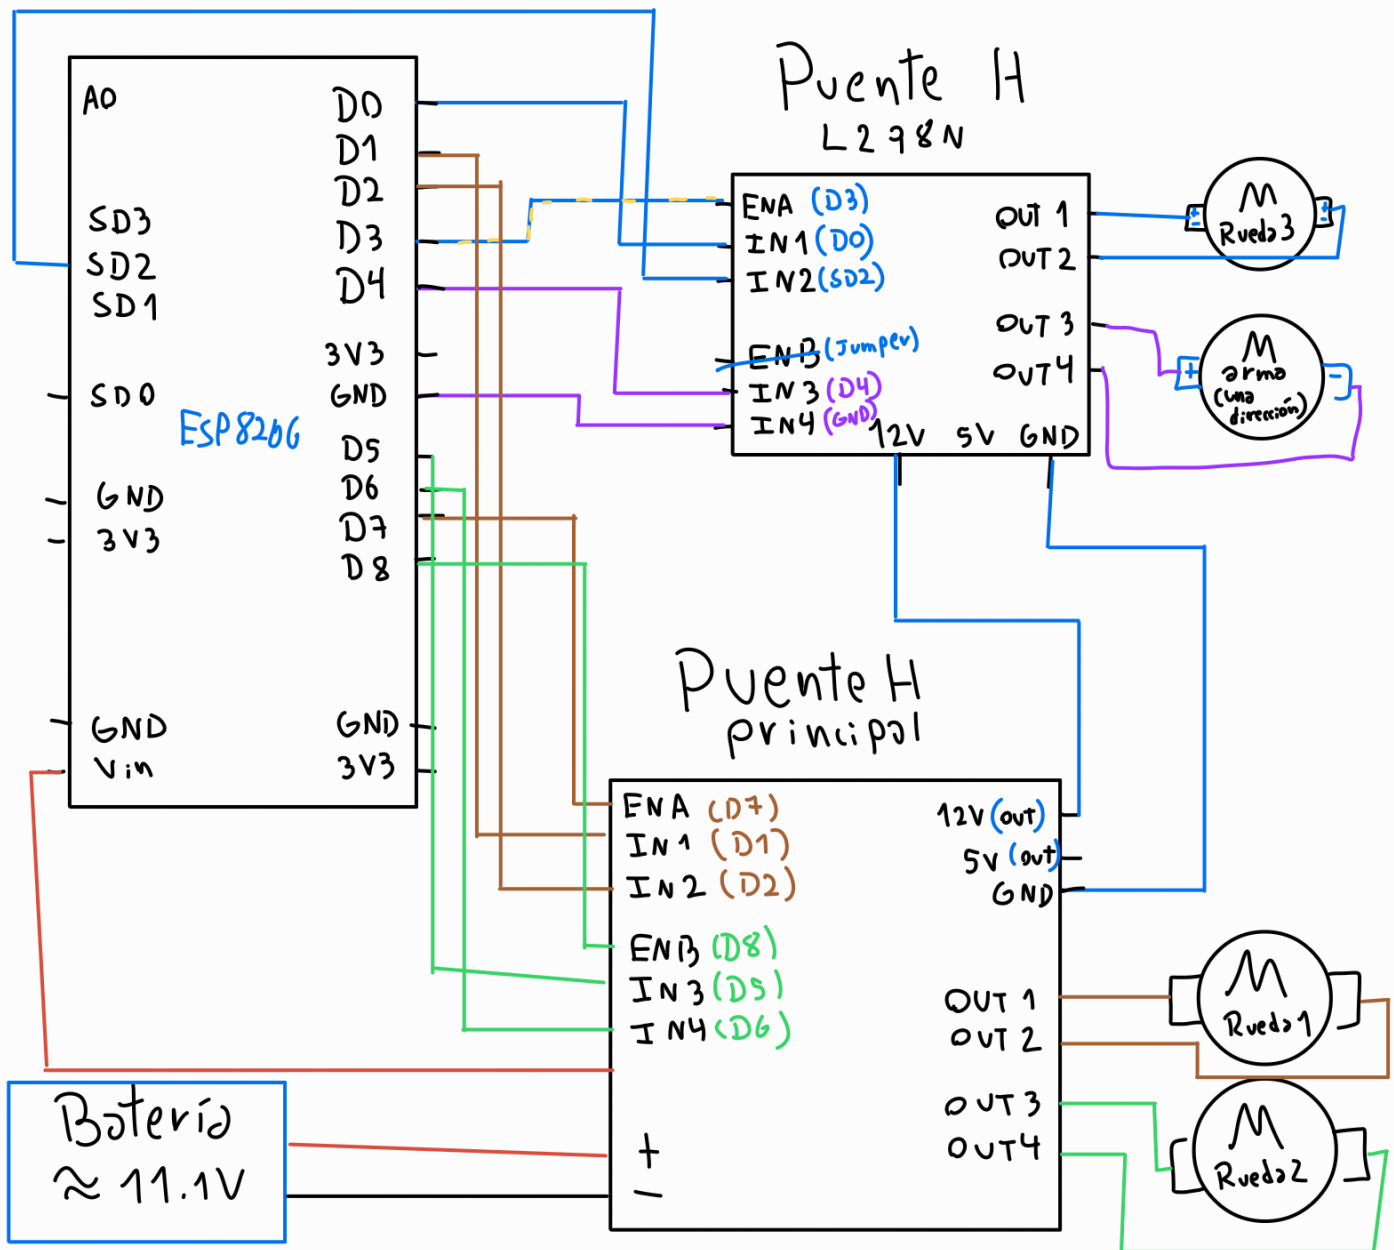 A0
SD3
SD2
SD1
SD0
GND
3V3
GND
Vin
D0
D1
D2
D3
D4
3V3
GND
D5
D6
D7
D8
GND
3V3
ESP8266
Puente H
L298N
ENA (D3)
IN1 (D0)
IN2 (SD2)
ENB (Jumper)
IN3 (D4)
IN4 (GND)
12V 5V GND
OUT 1
OUT 2
OUT 3
OUT4
M
Rueda3
+
-
+
-
M
arma
(una
dirección)
+
-
Puente H
principal
ENA (D7)
IN1 (D1)
IN2 (D2)
ENB (D8)
IN3 (D5)
IN4 (D6)
+
-
12V (out)
5V (out)
GND
OUT 1
OUT 2
OUT 3
OUT4
M
Rueda1
M
Rueda2
Batería
≈ 11.1V